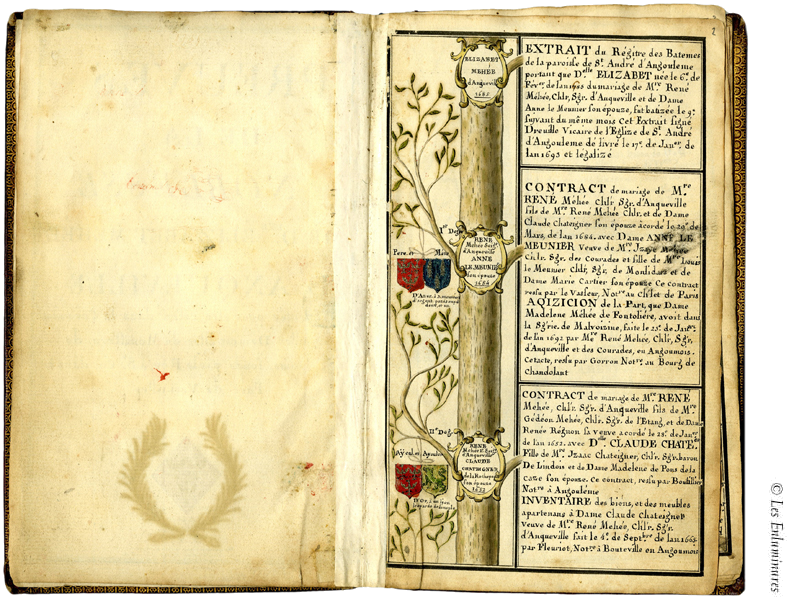 2
ELIZABET
MEHÉE
d'Anqueville
1685
EXTRAIT du Régitre des Batemes
de la paroisse de St. André d'Angouleme
portant que Dlle ELIZABET née le 6e. de
Févr. de lan du mariage de Mre René
Méhée, Chlr, Sgr. d'Anqueville et de Dame
Anne le Meunier son épouze, fut batizée le 9e.
suivant du même mois Cet Extrait signé
Dreuille Vicaire de l'Eglize de St. André
d'Angouleme dé livré le 17e. de Janer. de
lan 1693 et légalizé
CONTRACT de mariage de Mre.
RENÉ Méhée Chlr Sgr. d'Anqueville
fils de Mre René Mehée Chlr. et de Dame
Claude Chateigner son épouze acordé le 20e. de
Mars, de lan 1684. avec Dame ANNE LE
MEUNIER veuve de Mre. Izaac Mehée
Chlr. Sgr. des Courades et fille de Mre Louis
le Meunier Chlr, Sgr, de Monlidars et de
Dame Marie Cartier son épouze Ce contract
ressu par le Vasseur, Notre au Chlet de Paris
AQIZICION de la Part, que Dame
Madelene Méhée de Fontoliére, avoit dans
la Sgrie. de Malvoizine, faite le 23e. de Janer.
de lan 1692 par Mre René Mehée, Chlr, Sgr,
d'Anqueville et des Courades, en Angoumois.
Cetacte, ressu par Gorron Notre. au Bourg de
Chandolant
Ir. Deg.
RENÉ
Mehée Seigr
d'Anqueville
ANNE
LE MEUNIER
son épouze
1684
Pere et Mere
CONTRACT de mariage de Mre. RENÉ
Mehée, Chlr. Sgr. d'Anqueville fils de Mre
Gédéon Mehée, Chlr. Sgr. de l'Etang, et de Dame
Renée Régnon sa veuve acordé le 28e. de Janer.
de lan 1652. avec Dlle CLAUDE CHATE.
Fille de Mre. Izaac Chateigner, Chlr. Sgr. baron
De Lindois et de Dame Madelene de Pons de la
caze son épouze. Ce contract, ressu par Bouhillier
Notre à Angouléme
INVENTAIRE des biens, et des meubles
apartenans à Dame Claude Chateigner
veuve de Mre. René Mehée, Chlr. Sgr.
d'Anqueville fait le 4e. de Septbre de lan 1662
par Fleuriot, Notre à Bouteville en Angoumois
IIe. Deg.
RENÉ
Mehée Seigr
d'Anqueville
CLAUDE
CHATEIGNER
son épouze
Ayeul et Ayeule
© Les Enluminures